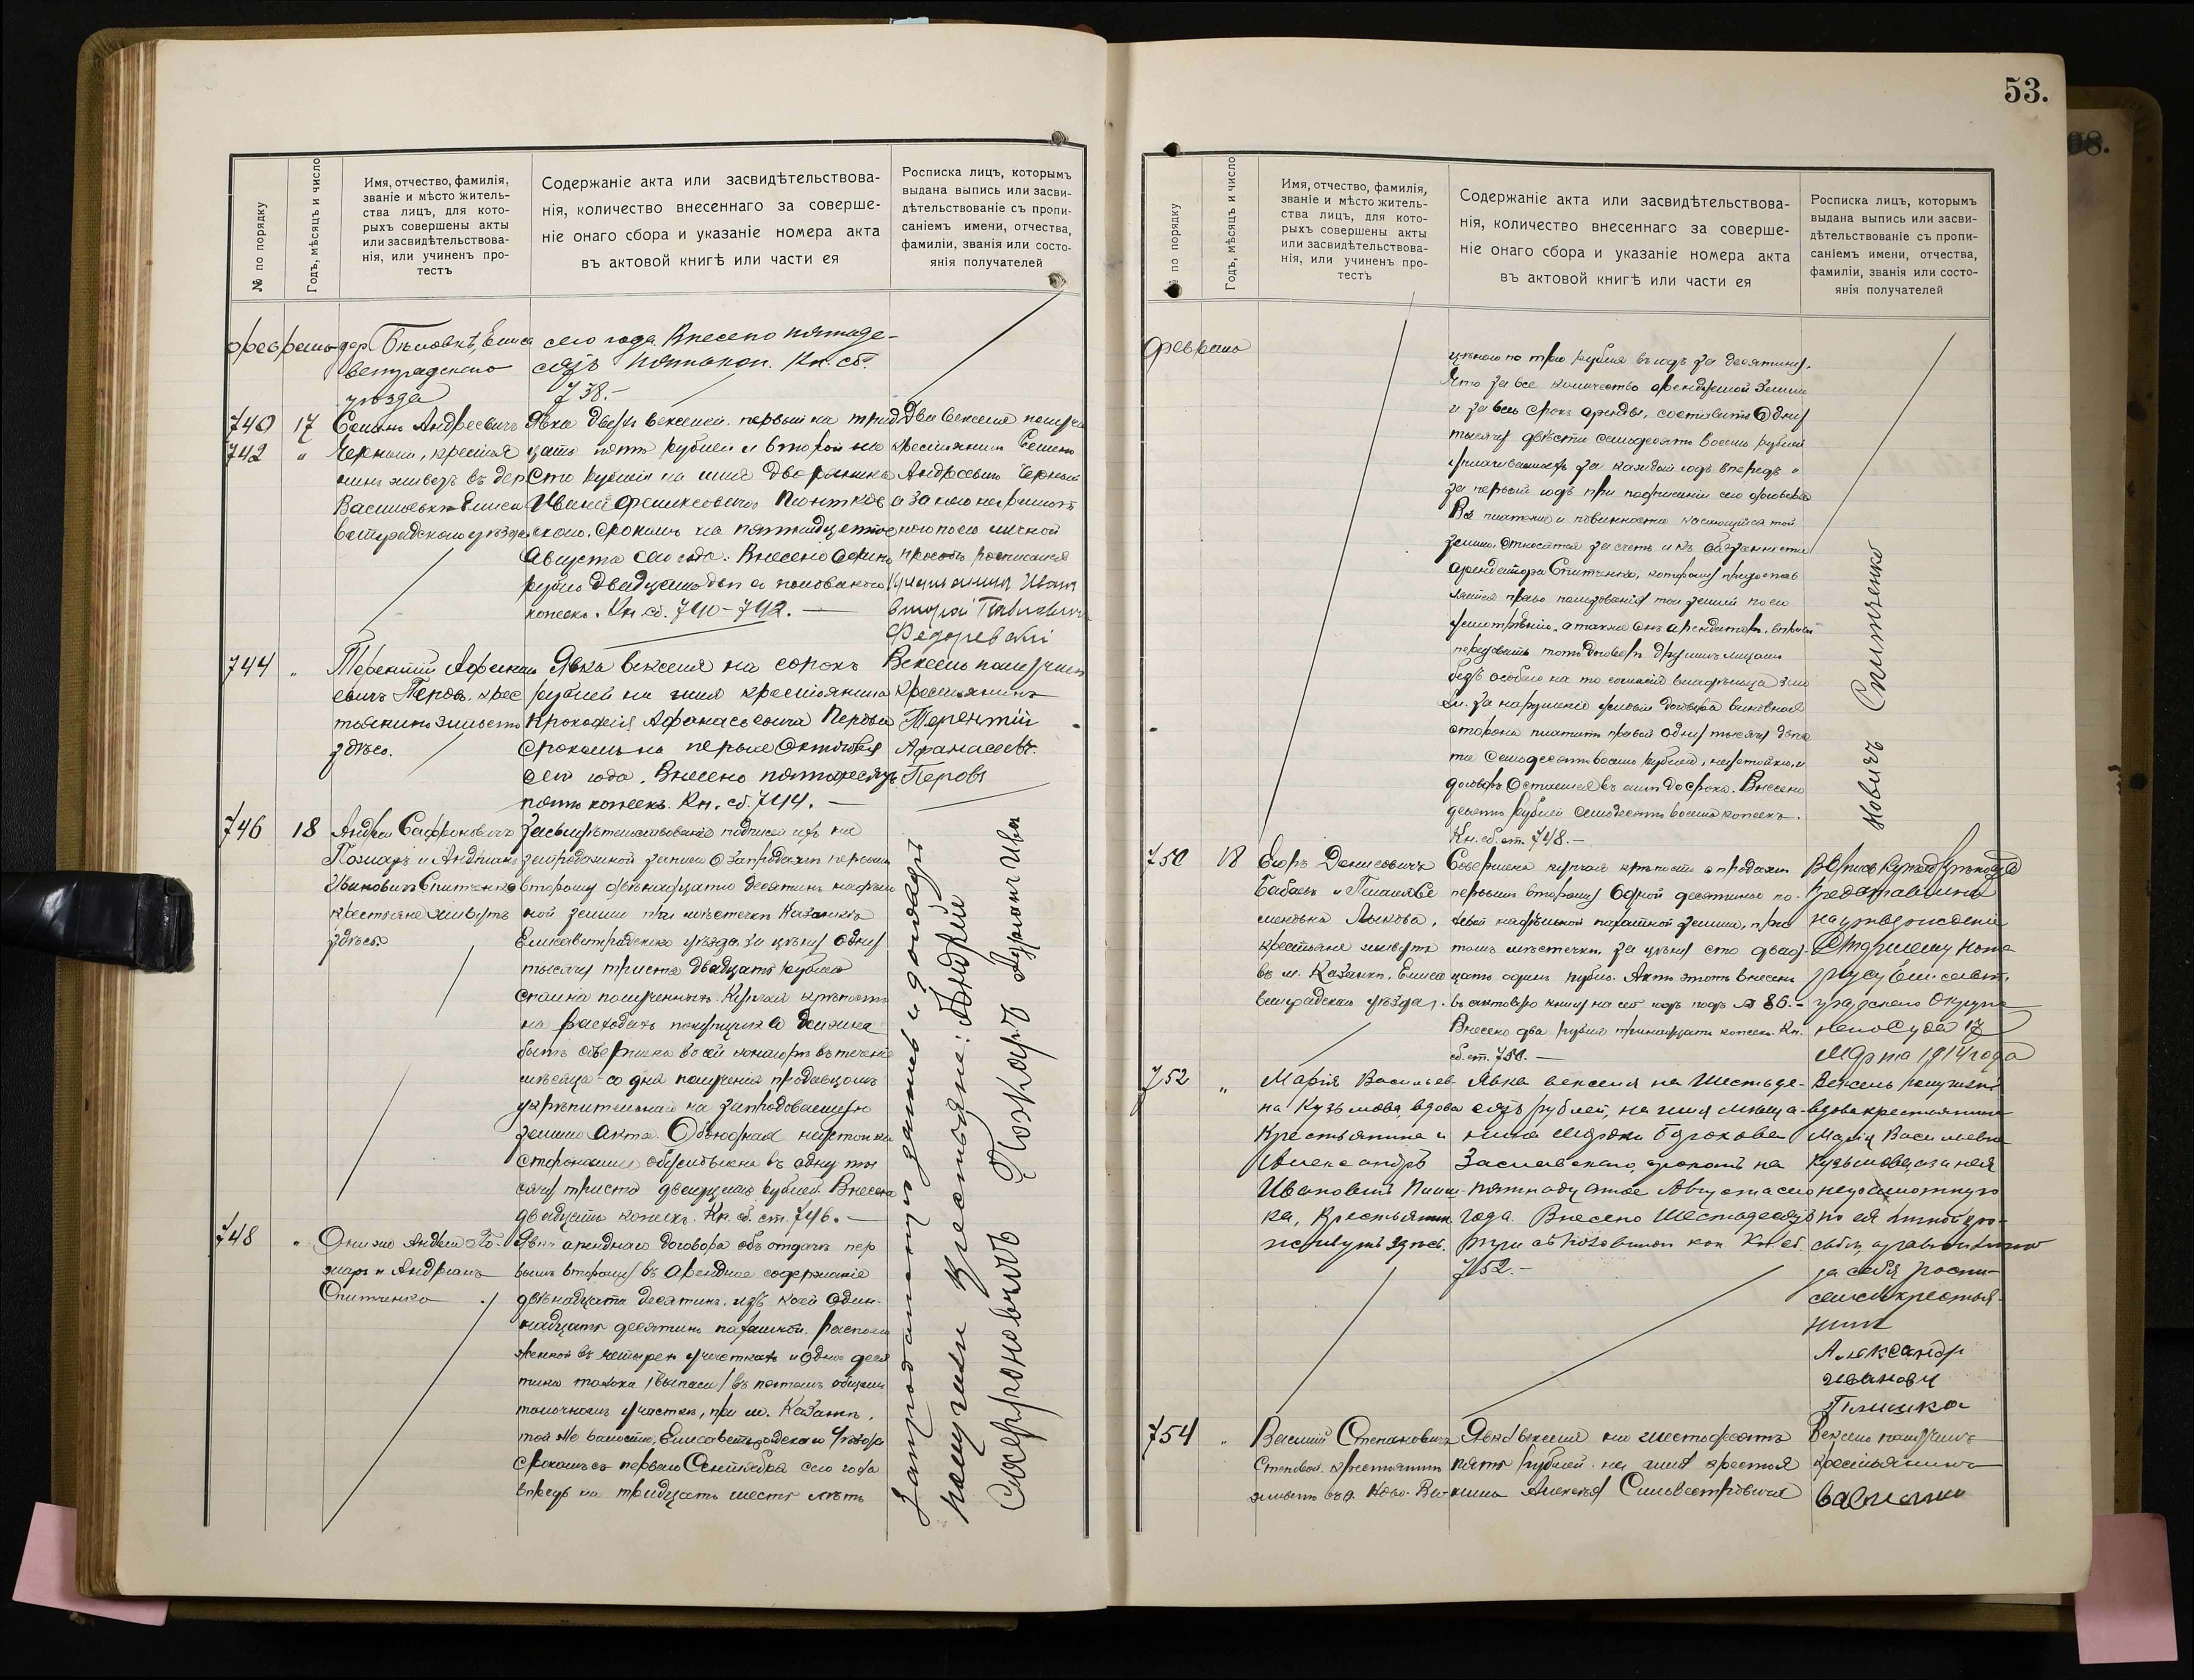 53.
№ по порядку
Годъ, мѣсяцъ и число
Имя, отчество, фамилія,
званіе и мѣсто житель-
ства лицъ, для кото-
рыхъ совершены акты
или засвидѣтельствова-
нія, или учиненъ про-
тестъ
Содержаніе акта или засвидѣтельствова-
нія, количество внесеннаго за соверше-
ніе онаго сбора и указаніе номера акта
въ актовой книгѣ или части ея
Росписка лицъ, которымъ
выдана выпись или засви-
дѣтельствованіе съ пропи-
саніемъ имени, отчества,
фамиліи, званія или состо-
янія получателей
февраль
дер. Елиса
ветградскаго
уѣзда
сего года. Внесено пятьде-
сятъ коп. Кн. сб.
738.-
740
742
17
"
Семенъ Андреевичъ
Черный, крестья
нинъ живетъ въ дер
Васильевкѣ Елиса
ветградскаго уѣзда
Явка двухъ векселей первый на трид
цать пять рублей и второй на
сто рублей на имя дворянина
Ивана Феликсовича
срокомъ на пятнадцатое
Августа сего года. Внесено одинъ
рубль двадцать два съ половиною
копеекъ. Кн. сб. 740-742.
Два векселя получи
крестьянинъ Семенъ
Андреевичъ Черный
а за него неграмот
наго по его личной
просьбѣ росписался
Иванъ
Павлович
744
"
Терентій Афанась
евичъ Перовъ, крес
тьянинъ живетъ
здѣсь.
Явка векселя на сорокъ
рублей на имя крестьянина
Прокофія Афанасьевича Перова
срокомъ на первое Октября
сего года. Внесено пятьдесятъ
пять копеекъ. Кн. сб. 744.
Вексель получилъ
крестьянинъ
Терентій
Афанасьевъ
Перовъ
746
18
Андрей Сафроновичъ
Пожаръ и Андріанъ
Ивановичъ Спитченко
крестьяне живутъ
здѣсь
Засвидѣтельствованіе подписей ихъ на
запродажной записи о запродажѣ первымъ
второму двѣнадцати десятинъ надѣль
ной земли при мѣстечкѣ Казанкѣ
Елисаветградскаго уѣзда за цѣну одну
тысячу триста двадцать рублей
сполна полученныхъ. Купчая крѣпость
на расходахъ покупщика должна
быть совершена въ сей конторѣ въ теченіе
мѣсяца со дня полученія продавцомъ
укрѣпительнаго на запродоваемую
землю акта. Обоюдная неустойка
сторонами обусловлена въ одну ты
сячу триста двадцать рублей. Внесено
двадцать копеекъ. Кн. сб. ст. 746.
748
"
Они же Андрей По-
жаръ и Андріанъ
Спитченко
Явка аренднаго договора объ отдачѣ пер
вымъ второму въ арендное содержаніе
двѣнадцати десятинъ, изъ коей один-
надцать десятинъ пахатной, располо
женной въ четырехъ участкахъ и одна деся
тина толока /выпаса/ въ пятомъ общемъ
толочномъ участкѣ, при м. Казанкѣ,
той же волости, Елисаветградскаго уѣзда
срокомъ съ перваго Сентября сего года
впредь на тридцать шесть лѣтъ
Запродажную запись и договоръ
получили Крестьяне: Андрей
Сафроновичъ Пожаръ Андріанъ Ива
новичъ Спитченко
№ по порядку
Годъ, мѣсяцъ и число
Имя, отчество, фамилія,
званіе и мѣсто житель-
ства лицъ, для кото-
рыхъ совершены акты
или засвидѣтельствова-
нія, или учиненъ про-
тестъ
Содержаніе акта или засвидѣтельствова-
нія, количество внесеннаго за соверше-
ніе онаго сбора и указаніе номера акта
въ актовой книгѣ или части ея
Росписка лицъ, которымъ
выдана выпись или засви-
дѣтельствованіе съ пропи-
саніемъ имени, отчества,
фамиліи, званія или состо-
янія получателей
февраль
цѣною по три рубля въ годъ за десятину,
что за все количество арендуемой земли
и за весь срокъ аренды, составитъ одну
тысячу двѣсти семьдесятъ восемь рублей
за каждый годъ впередъ и
за первый годъ при подписаніи сего договора
Всѣ платежи и повинности касающіеся той
земли, относятся за счетъ и къ обязанности
арендатора Спитченко, которому предостав
ляется право пользованія той землей по его
усмотрѣнію, а также онъ арендаторъ, вправѣ
передавать тотъ договоръ другимъ лицамъ
безъ особаго на то согласія владѣльца зем
ли. За нарушеніе условій договора виновная
сторона платитъ правой одну тысячу двѣс
ти семьдесятъ восемь рублей, неустойки, и
договоръ остается въ силѣ до срока. Внесено
десять рублей семьдесятъ восемь копеекъ.
Кн. сб. ст. 748.-
750
18
Егоръ Денисовичъ
Бабаевъ и
Лыкова,
крестьяне живутъ
въ м. Казанкѣ, Елиса
ветградскаго уѣзда.
Совершена купчая крѣпость о продажѣ
первымъ второму одной десятины по-
левой надѣльной пахатной земли, при
томъ мѣстечкѣ, за цѣну сто двад-
цать одинъ рубль. Актъ этотъ внесенъ
въ актовую книгу на сей годъ подъ № 86.-
Внесено два рубля тринадцать копеекъ. Кн.
сб. ст. 750.
Выпись Купчей Крѣпости
представлена
на утвержденіе
Старшему Нота
ріусу Елисавет
градскаго Окруж
наго Суда 17
Марта 1914 года
752
"
Марія Василъев
на Кузьмова, вдова
Крестьянина и
Александръ
Ивановичъ Плиш
ка, Крестьянин
живутъ здѣсь.
Явка векселя на шестьде-
сятъ рублей, на имя мѣща-
нина Мордки
Заславскаго, срокомъ на
пятнадцатое Августа сего
года. Внесено шестьдесятъ
три съ половиной коп. Кн. сб.
752.-
Вексель получила
вдова крестьянина
Марія Васильевна
Кузьмова, а за нея
неграмотную
по ея личной про-
сьбѣ, а равно и
за себя роспи-
сался крестья-
нинъ
Александр
Иванович
Плишка
754
"
Василій Степановичъ
Степовой, крестьянинъ
живетъ въ д. Ново-Ва-
Явка векселя на шестьдесятъ
пять рублей на имя крестья
нина Алексѣя Сильвестровича
Вексель получилъ
крестьянинъ
Василий